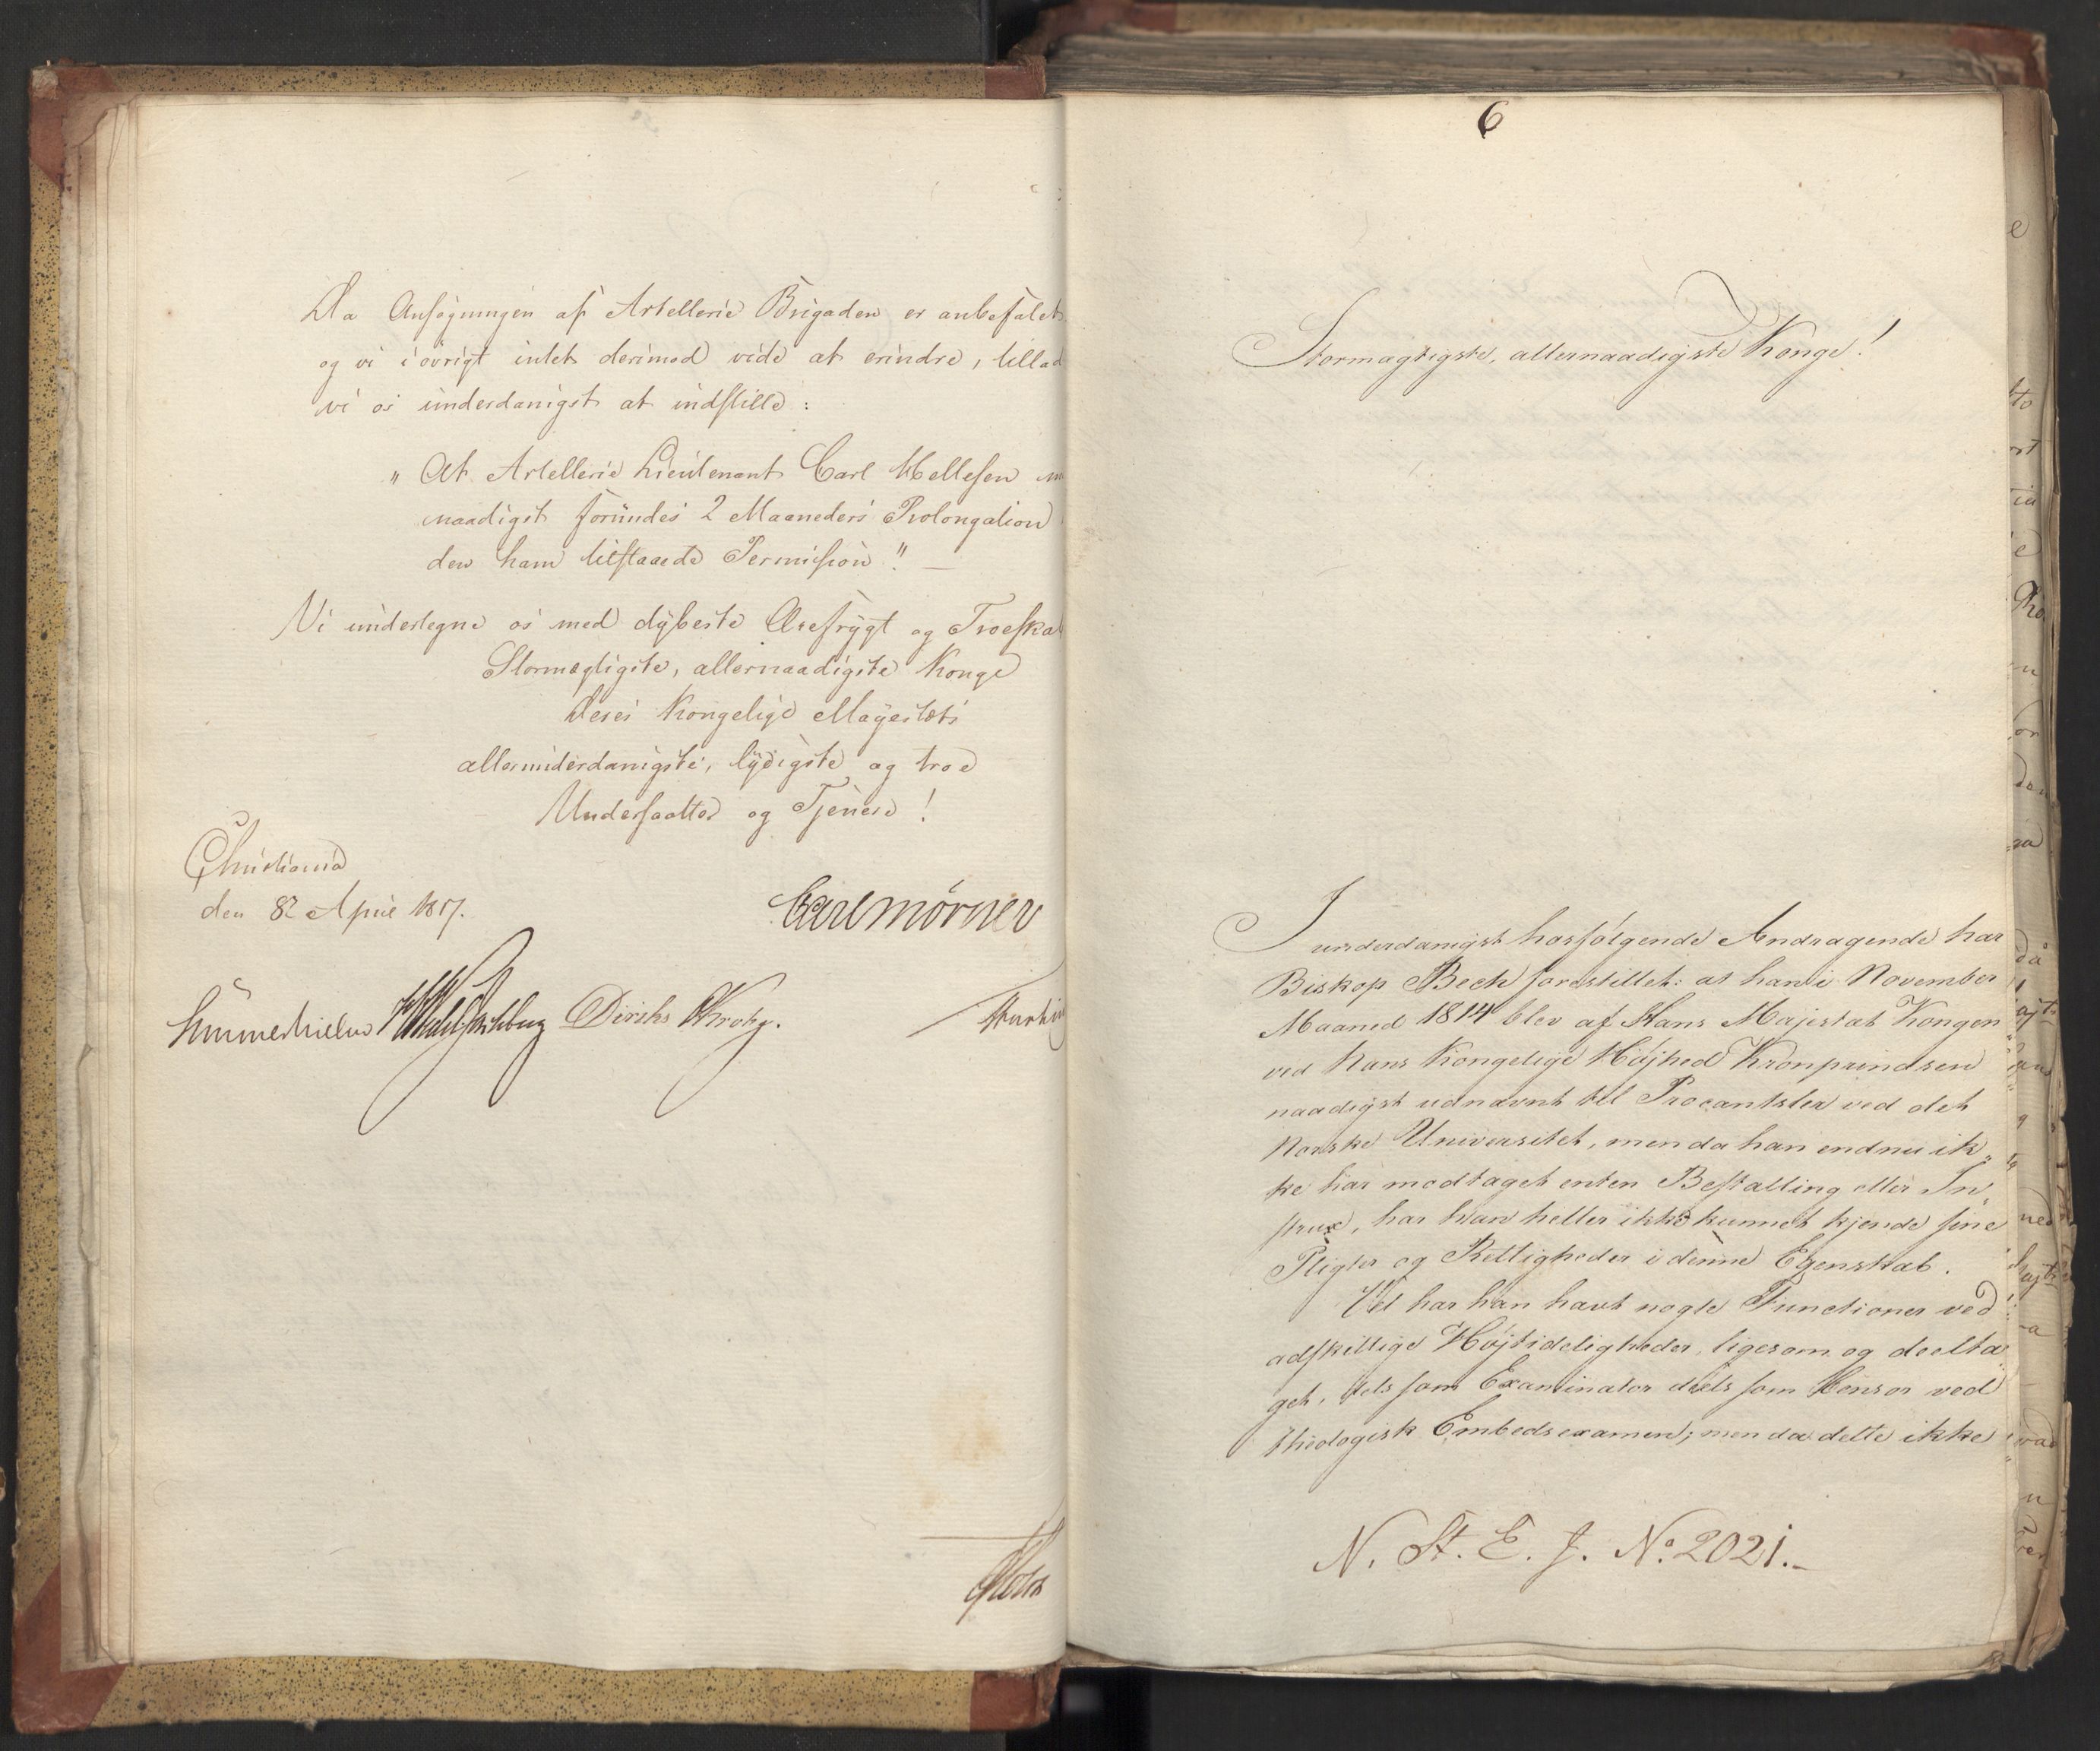 Da Ansøgningen af Artellerie Brigaden er anbefalet
og vi iøvrigt intet derimod vide at erindre, tillad
vi os underdanigst at indstille:
" At Artellerie Lieutenant Carl Mellesen
naadigst forundes 2 Maaneders Prolongation
den ham tilstaaede Permission". —
Vi undertegne os med dybeste Ærefrygt og Troeskab
Stormægtigste, allernaadigste Konge
Deres Kongelige Mayestæts
allerunderdanigste, lydigste og troe
Undersaatter og Tjenere!
Christiania
den 8de April 1817.
Carl Mørner
Sommerhielm Diriks Krohg.
Motz
6
Stormægtigste, allernaadigste Konge!
I underdanigst hosfølgende Andragende har
Biskop Bech forestillet: at han i November
Maaned 1814 blev af Hans Majestæt Kongen
ved Hans Kongelige Højhed Kronprindsen
naadigst udnævnt til Procantsler ved det
Norske Universitet, men da han endnu ik„
ke har modtaget enten Bestalling eller In„
strux, har han heller ikke kunnet kjende sine
Pligter og Rettigheder i denne Egenskab.
Vel har han havt nogle Functioner ved
adskillige Højtideligheder, ligesom og deelta„
get, dels som Examinator deels som Censor ved
theologisk Embedsexamen; men da dette ikke
N. St. E. J. No. 2021.-